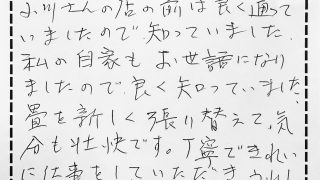 小川さんの店の前は良く通って
いましたので知っていました.
私の自家もお世話になり
ましたので良く知っていました.
畳を新しく張り替えて、気
分も壮快です。丁寧できれい
に仕事をしていただき